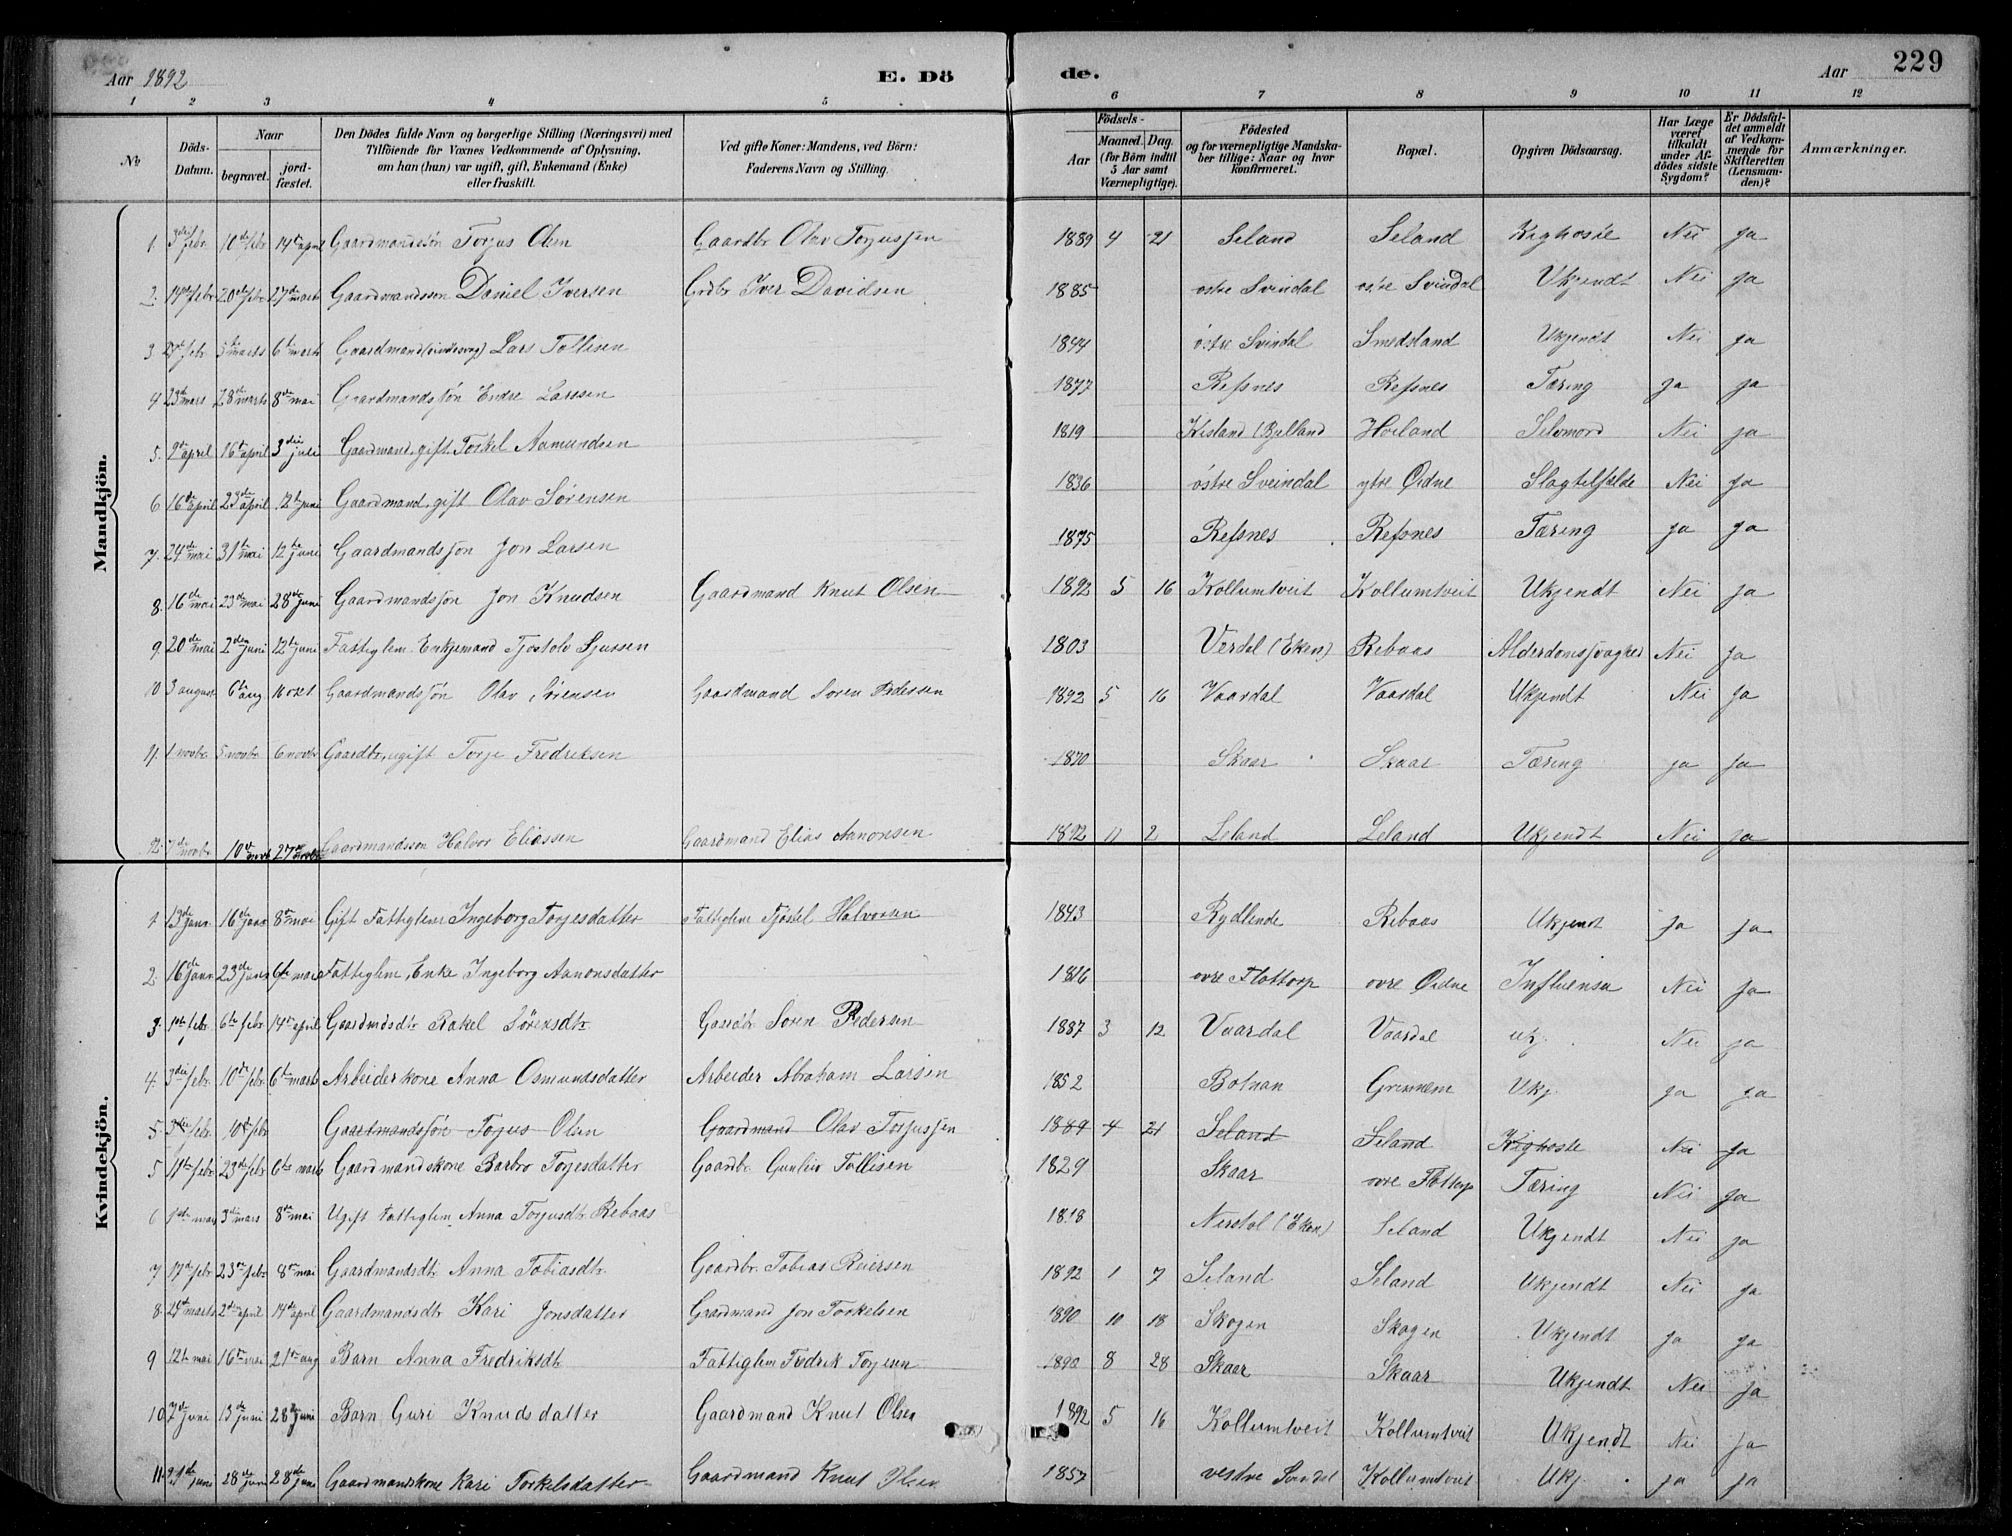 Aar 1892 E. Dö
de. Aar 229
1 2 3 4 5 6 7 8 9 10 11 12
No Döds-Datum. Naar begravet. jord-fæstet. Den Dödes fulde Navn og borgerlige Stilling (Næringsvei) med Tilföiende for Voxnes Vedkommende af Oplysning, om han (hun) var ugift, gift, Enkemand (Enke) eller fraskilt. Ved gifte Koner: Mandens, ved Börn: Faderens Navn og Stilling. Födsels- Aar Maaned. Dag. (for Börn indtil 5 Aar samt Værnepligtige). Födested og for værnepligtige Mandskaber tillige: Naar og hvor konfirmeret. Bopæl. Opgiven Dödsaarsag. Har Læge været tilkaldt under Afdödes sidste Sygdom? Er Dödsfaldet anmeldt af Vedkommende for Skifteretten (Lensmanden)? Anmærkninger.
Mandkjön.
1 3die febr 10de febr 14de april Gaardmandssøn Torjus Olsen Gaardbr Olav Torjussen 1889 4 21 Seland Seland Kighoste Nei Ja
2. 14de febr 20de febr 27de marts Gaardmandssøn Daniel Iversen Grdbr Iver Davidsen 1885 østre Svindal østre Svindal Ukjendt Nei Ja
3 febr 5te marts 6te marts Gaardmand Lars Tollisen 1844 østre Svindal Smedsland Ukjendt Nei Ja
4 23de mars 28de marts 8de mai Gaardmandssøn Endre Larsen 1877 Refsnes Refsnes Tæring Ja Ja
5. 9de april 16de april 3die juli Gaardmand, gift Torkel Aamundsen 1819 Kisland (Bjelland Høiland Selvmord Nei Ja
6 16de april 23de april 12te juni Gaardmand, gift Olav Sørensen 1836 østre Sveindal ytre Øidne Slagtilfælde Nei Ja
7. 24de mai 31te mai 12te juni Gaardmandssøn Jon Larsen 1875 Refsnes Refsnes Tæring Ja Ja
8. 16de mai 23de mai 28de juni Gaardmandssøn Jon Knudsen Gaardmand Knut Olsen 1892 5 16 Kollumtveit Kollumtveit Ukjendt Nei Ja
9. 20de mai 2den juni 12te juni Fattiglem Enkjemand Tjostolv Sjursen 1803 Verdal (Eken) Rebaas Alderdomssvaghed Nei Ja
10 3 august 6te aug 16 oct Gaardmandssøn Olav Sørensen Gaardmand Søren Pedersen 1892 5 16 Vaardal Vaardal Ukjendt Nei Ja
11. 1 novbr 5 novbr 6 novbr Gaardbr, ugift Torje Fredriksen 1870 Skaar Skaar Tæring Ja Ja
12. 7de novbr 10de novb 27de novbr Gaardmandssøn Halvor Eliassen Gaardmand Elias Aanonsen 1892 11 2 Leland Leland Ukjendt Nei Ja
Kvindekjön.
1 13de janr 16de janr 8de mai Gift Fattiglem Ingeborg Torjesdatter Fattiglem Tjøstel Halvorsen 1843 Rydlende Rebaas Ukjendt Ja Ja
2. 16de janr 23de janr 6te mai Fattiglem, Enke Ingeborg Aanonsdatter 1816 øvre Flottorp øvre Øidne Influensa Nei Ja
3. 1ste febr 6te febr 14de april Gaardmdsdtr Rakel Sørensdtr Gaardbr Søren Pedersen 1887 3 12 Vaardal Vaardal Ukj. Nei Ja
4. 3die febr. 10de febr 6te marts Arbeiderkone Anna Osmundsdatter Arbeider Abraham Larsen 1852 Botnan Grimnem Ukj. Ja Ja
5 3die febr. 10de febr Gaardmandssøn Torjus Olsen Gaardmand Olav Torjussen 1889 4 21 Seland Seland Kighoste Nei Ja
5 11te febr 23de febr 6te marts Gaardmandskone Barbro Torjesdatter Gaardbr. Gunleiv Tollisen 1829 Skaar øvre Flottorp Tæring Nei Ja
6 1ste mars 3die mars 8de mai Ugift Fattiglem Anna Torjusdtr Rebaas 1818 Nerstol (Eken) Seland Ukjendt Nei Ja
7 17de febr 23de febr 8de mai Gaardmandsdtr Anna Tobiasdtr Gaardbr. Tobias Reiersen 1892 1 7 Seland Seland Ukjendt Nei Ja
8. 28de marts 2den april 14de april Gaardmandsdtr Kari Jonsdatter Gaardmand Jon Torkelsen 1890 10 18 Skogen Skogen Ukjendt Ja Ja
9 12te mai 16de mai 21te aug Barn Anna Fredriksdtr Fattiglem Fredrik Torjesen 1890 8 28 Skaar Skaar Ukjendt Nei Ja
10. 7de juni 13de juni 28de juni Barn Guri Knudsdatter Gaardmand Knut Olsen 1892 5 16 Kollumtveit Kollumtveit Ukjendt Nei Ja
11. 21de juni 28de juni 28de juni Gaardmandskone Kari Torkelsdatter Gaardmand Knut Olsen 1857 vestre Svindal Kollumtveit Ukj. Ja Ja